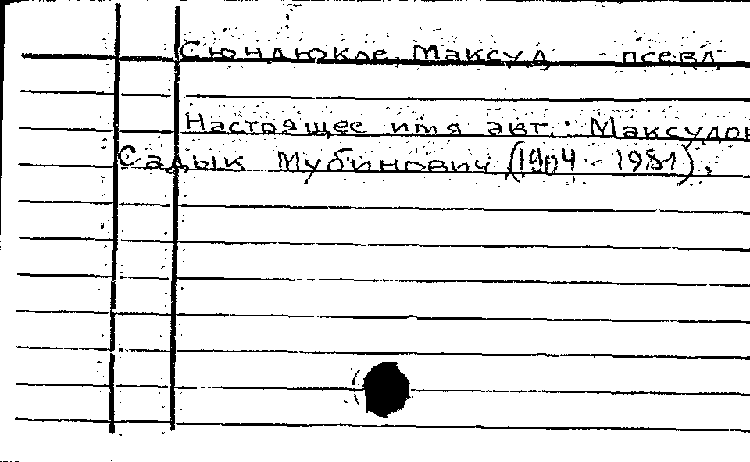 Сюндюкле, Максуд псевд
Настоящее имя авт.: Максудов
Садык Мубинович (1904 - 1981).